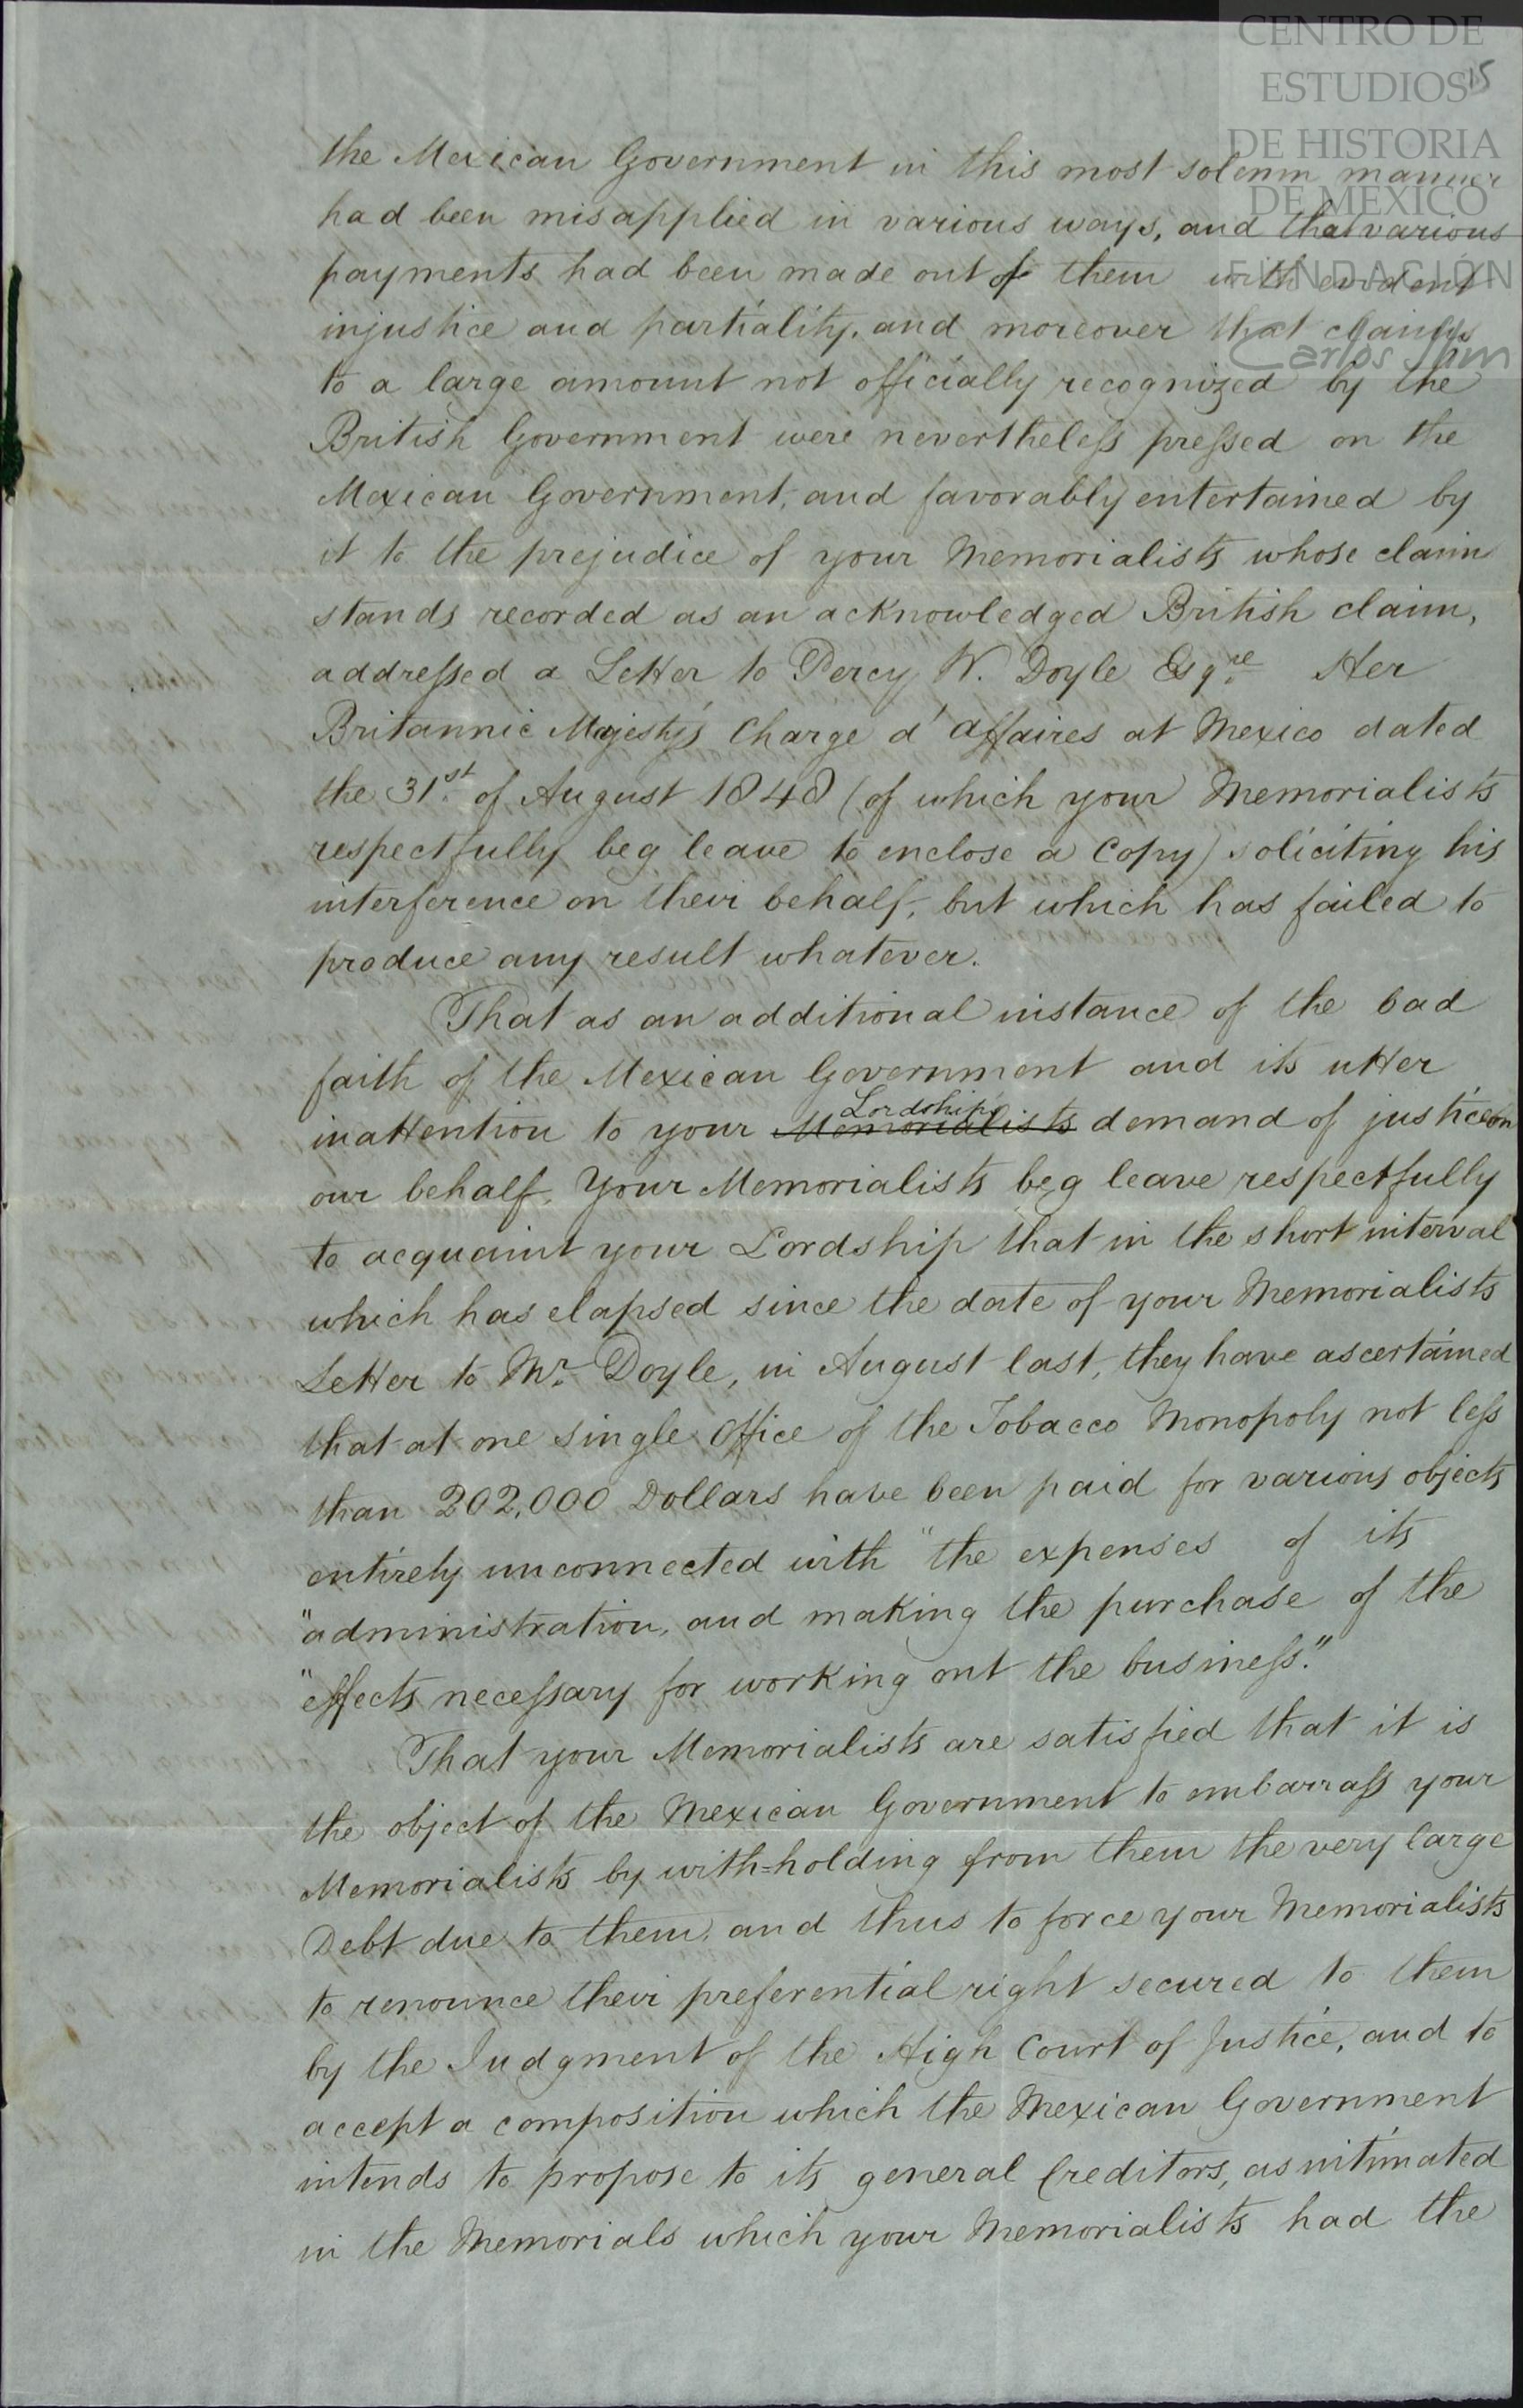 CENTRO DE
ESTUDIOS
DE HISTORIA
DE MEXICO
FUNDACIÓN
Carlos Slim
15
the Mexican Government in this most solemn manner
had been misapplied in various ways, and that various
payments had been made out of them with evident
injustice and partiality, and moreover that claims
to a large amount not officially recognized by the
British Government were nevertheless pressed on the
Mexican Government, and favorably entertained by
it to the prejudice of your Memorialists whose claim
stands recorded as an acknowledged British claim,
addressed a Letter to Percy W. Doyle Esqre. Her
Britannic Majesty's Charge d'Affaires at Mexico dated
the 31st. of August 1848 (of which your Memorialists
respectfully beg leave to enclose a Copy) soliciting his
interference on their behalf, but which has failed to
produce any result whatever.
That as an additional instance of the bad
faith of the Mexican Government and its utter
Lordship's
inattention to your Memorialists demand of justice on
our behalf, Your Memorialists beg leave respectfully
to acquaint your Lordship that in the short interval
which has elapsed since the date of your Memorialists
Letter to Mr. Doyle, in August last, they have ascertained
that at one single Office of the Tobacco Monopoly not less
than 202,000 Dollars have been paid for various objects
entirely unconnected with "the expenses of its
"administration, and making the purchase of the
"effects necessary for working out the business."
That your Memorialists are satisfied that it is
the object of the Mexican Government to embarrass your
Memorialists by with=holding from them the very large
Debt due to them, and thus to force your Memorialists
to renounce their preferential right secured to them
by the Judgment of the High Court of Justice, and to
accept a composition which the Mexican Government
intends to propose to its general Creditors, as intimated
in the Memorials which your Memorialists had the